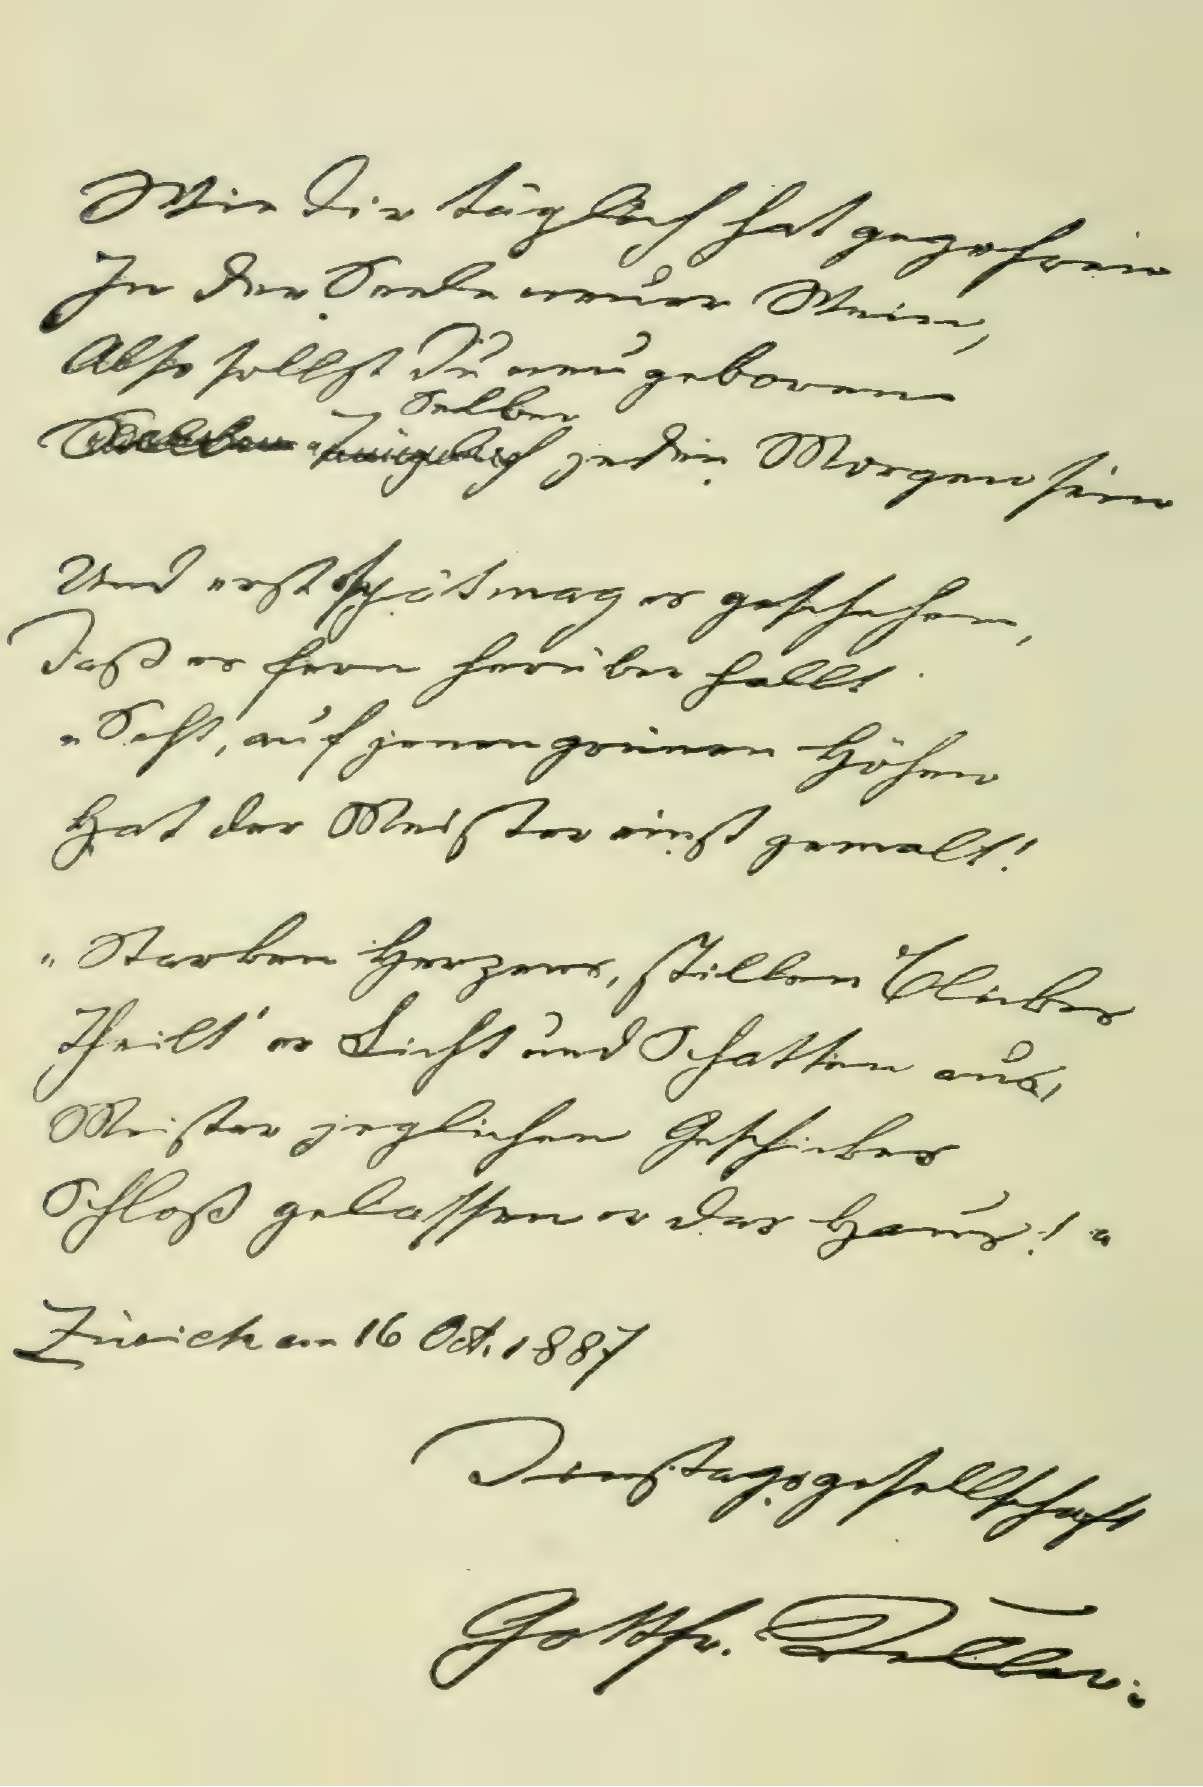 Wie Dir täglich hat gegohren
In der Seele neuer Wein,
Also sollst Du neu geboren
Selber
jeden Morgen sein
Und erst spät mag es geschehen,
Daß es fern herüber hallt
„Seht, auf jenen grünen Höhen
Hat der Meister einst gemalt!
„Starken Herzens, stillen Blickes
Theilt' er Licht und Schatten aus,
Meister jeglichen Geschickes
Schloß gelassen er das Haus!“
Zürich am 16 Oct. 1887
Dienstagsgesellschaft
Gottfr. Keller.